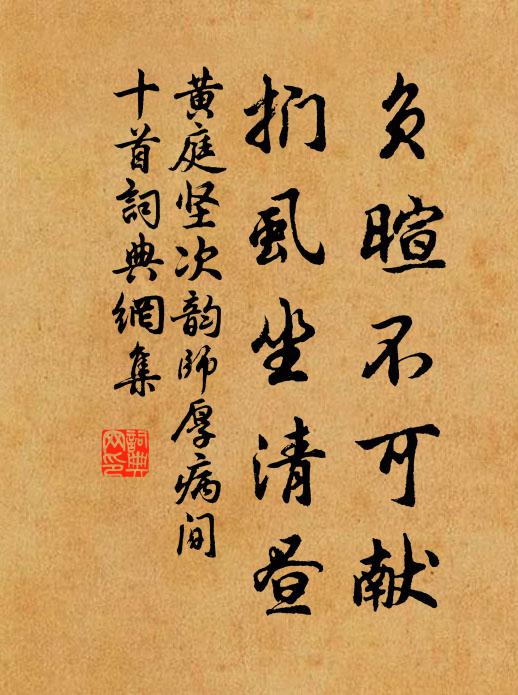 负暄不可献
扪虱坐清昼
黄庭坚次韵師厚病间
十首詞典網集
詞典网印